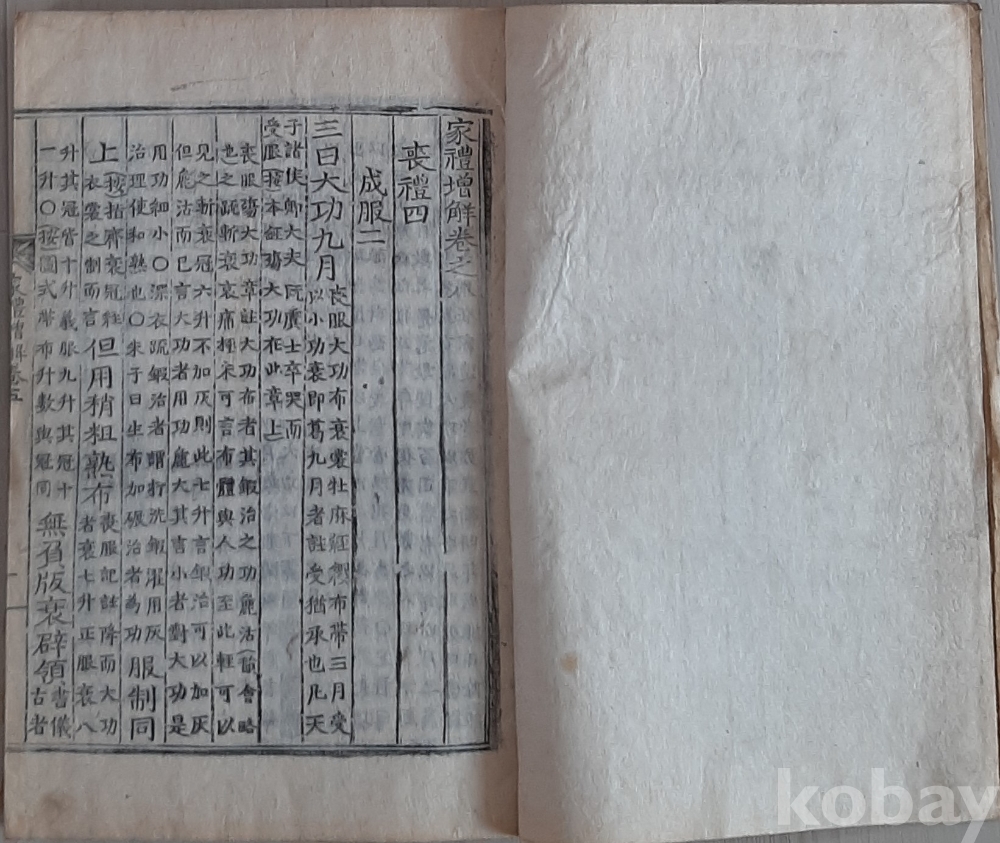 家禮增解卷之
喪禮四
成服二
三曰大功九月
喪服大功布衰裳牡麻絰纓布帶三月受
以小功衰即葛九月者註受猶承也凡天
子諸侯卿大夫既虞士卒哭而
受服(按)本經殤大功在此章上
喪服殤大功章註大功布者其鍛治之功麁沽
也之疏斬衰哀痛極未可言布體與人功至此輕可以
見之斬衰冠六升不加灰則此七升言鍛治可以加灰
但麁沽而已言大功者用功麁大其言小者對大功是
用功細小○深衣疏鍛治者謂打洗鍛濯用灰
治理使和熟也○朱子曰生布加碾治者為功
服制同
上
(按)指齊衰冠絰
衣裳之制而言
但用稍粗熟布
喪服記註降而大功
者衰七升正服衰八
升其冠皆十升義服九升其冠十
一升○按圖式布升數與冠同
無負版衰辟領
書儀
古者
家禮增解卷五
kobay